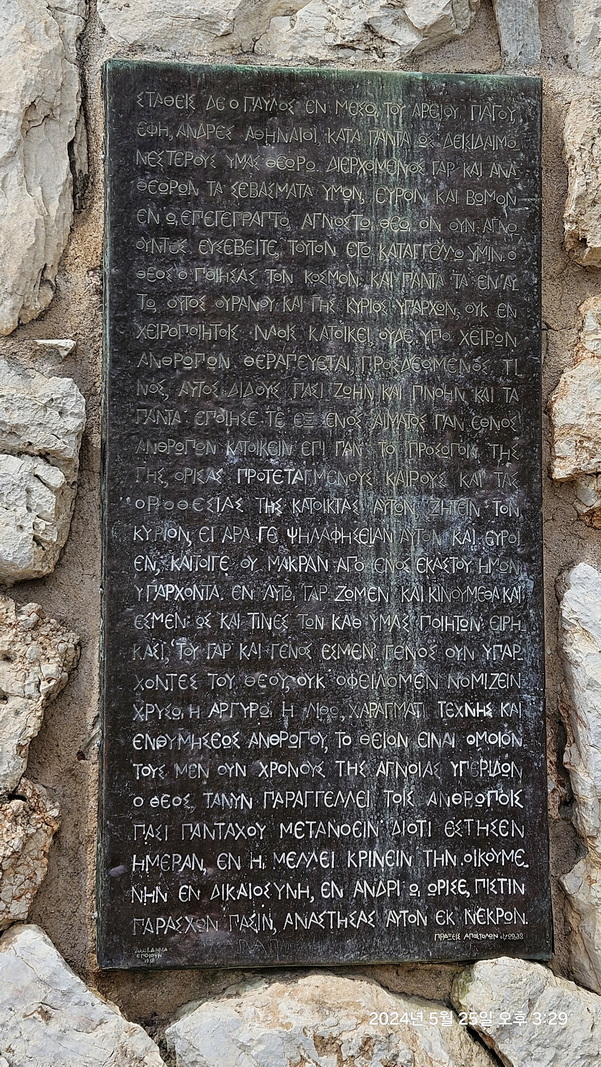 ΣΤΑΘΕΙΣ ΔΕ Ο ΠΑΥΛΟΣ ΕΝ ΜΕΣΩ, ΤΟΥ ΑΡΕΙΟΥ ΠΑΓΟΥ,
ΕΦΗ, ΑΝΔΡΕΣ ΑΘΗΝΑΙΟΙ, ΚΑΤΑ ΠΑΝΤΑ ΩΣ ΔΕΙΣΙΔΑΙΜΟ
ΝΕΣΤΕΡΟΥΣ ΥΜΑΣ ΘΕΩΡΩ. ΔΙΕΡΧΟΜΕΝΟΣ ΓΑΡ ΚΑΙ ΑΝΑ
ΘΕΩΡΩΝ ΤΑ ΣΕΒΑΣΜΑΤΑ ΥΜΩΝ, ΕΥΡΟΝ ΚΑΙ ΒΩΜΟΝ
ΕΝ Ω, ΕΠΕΓΕΓΡΑΠΤΟ, ΑΓΝΩΣΤΩ ΘΕΩ, ΟΝ ΟΥΝ ΑΓΝΟ
ΟΥΝΤΕΣ ΕΥΣΕΒΕΙΤΕ, ΤΟΥΤΟΝ ΕΓΩ ΚΑΤΑΓΓΕΛΛΩ ΥΜΙΝ. Ο
ΘΕΟΣ Ο ΠΟΙΗΣΑΣ ΤΟΝ ΚΟΣΜΟΝ ΚΑΙ ΠΑΝΤΑ ΤΑ ΕΝ ΑΥ
ΤΩ, ΟΥΤΟΣ ΟΥΡΑΝΟΥ ΚΑΙ ΓΗΣ ΚΥΡΙΟΣ ΥΠΑΡΧΩΝ, ΟΥΚ ΕΝ
ΧΕΙΡΟΠΟΙΗΤΟΙΣ ΝΑΟΙΣ ΚΑΤΟΙΚΕΙ, ΟΥΔΕ ΥΠΟ ΧΕΙΡΩΝ
ΑΝΘΡΩΠΩΝ ΘΕΡΑΠΕΥΕΤΑΙ, ΠΡΟΣΔΕΟΜΕΝΟΣ ΤΙ
ΝΟΣ, ΑΥΤΟΣ ΔΙΔΟΥΣ ΠΑΣΙ ΖΩΗΝ ΚΑΙ ΠΝΟΗΝ ΚΑΙ ΤΑ
ΠΑΝΤΑ ΕΠΟΙΗΣΕ ΤΕ ΕΞ ΕΝΟΣ ΑΙΜΑΤΟΣ ΠΑΝ ΕΘΝΟΣ
ΑΝΘΡΩΠΩΝ ΚΑΤΟΙΚΕΙΝ ΕΠΙ ΠΑΝ ΤΟ ΠΡΟΣΩΠΟΝ ΤΗΣ
ΓΗΣ, ΟΡΙΣΑΣ ΠΡΟΤΕΤΑΓΜΕΝΟΥΣ ΚΑΙΡΟΥΣ ΚΑΙ ΤΑΣ
ΟΡΟΘΕΣΙΑΣ ΤΗΣ ΚΑΤΟΙΚΙΑΣ ΑΥΤΩΝ, ΖΗΤΕΙΝ ΤΟΝ
ΚΥΡΙΟΝ, ΕΙ ΑΡΑ ΓΕ ΨΗΛΑΦΗΣΕΙΑΝ ΑΥΤΟΝ ΚΑΙ ΕΥΡΟΙ
ΕΝ, ΚΑΙΤΟΙΓΕ ΟΥ ΜΑΚΡΑΝ ΑΠΟ ΕΝΟΣ ΕΚΑΣΤΟΥ ΗΜΩΝ
ΥΠΑΡΧΟΝΤΑ. ΕΝ ΑΥΤΩ, ΓΑΡ ΖΩΜΕΝ ΚΑΙ ΚΙΝΟΥΜΕΘΑ ΚΑΙ
ΕΣΜΕΝ. ΩΣ ΚΑΙ ΤΙΝΕΣ ΤΩΝ ΚΑΘ ΥΜΑΣ ΠΟΙΗΤΩΝ ΕΙΡΗ
ΚΑΣΙ, ΤΟΥ ΓΑΡ ΚΑΙ ΓΕΝΟΣ ΕΣΜΕΝ ΓΕΝΟΣ ΟΥΝ ΥΠΑΡ
ΧΟΝΤΕΣ ΤΟΥ ΘΕΟΥ, ΟΥΚ ΟΦΕΙΛΟΜΕΝ ΝΟΜΙΖΕΙΝ
ΧΡΥΣΩ, Η ΑΡΓΥΡΩ, Η ΛΙΘΩ, ΧΑΡΑΓΜΑΤΙ ΤΕΧΝΗΣ ΚΑΙ
ΕΝΘΥΜΗΣΕΩΣ ΑΝΘΡΩΠΟΥ, ΤΟ ΘΕΙΟΝ ΕΙΝΑΙ ΟΜΟΙΟΝ.
ΤΟΥΣ ΜΕΝ ΟΥΝ ΧΡΟΝΟΥΣ ΤΗΣ ΑΓΝΟΙΑΣ ΥΠΕΡΙΔΩΝ
Ο ΘΕΟΣ, ΤΑΝΥΝ ΠΑΡΑΓΓΕΛΛΕΙ ΤΟΙΣ ΑΝΘΡΩΠΟΙΣ
ΠΑΣΙ ΠΑΝΤΑΧΟΥ ΜΕΤΑΝΟΕΙΝ ΔΙΟΤΙ ΕΣΤΗΣΕΝ
ΗΜΕΡΑΝ, ΕΝ Η, ΜΕΛΛΕΙ ΚΡΙΝΕΙΝ ΤΗΝ ΟΙΚΟΥΜΕ
ΝΗΝ ΕΝ ΔΙΚΑΙΟΣΥΝΗ, ΕΝ ΑΝΔΡΙ Ω, ΩΡΙΣΕ, ΠΙΣΤΙΝ
ΠΑΡΑΣΧΩΝ ΠΑΣΙΝ, ΑΝΑΣΤΗΣΑΣ ΑΥΤΟΝ ΕΚ ΝΕΚΡΩΝ.
ΠΡΑΞΕΙΣ ΑΠΟΣΤΟΛΩΝ
2024년 5월 25일 오후 3:29